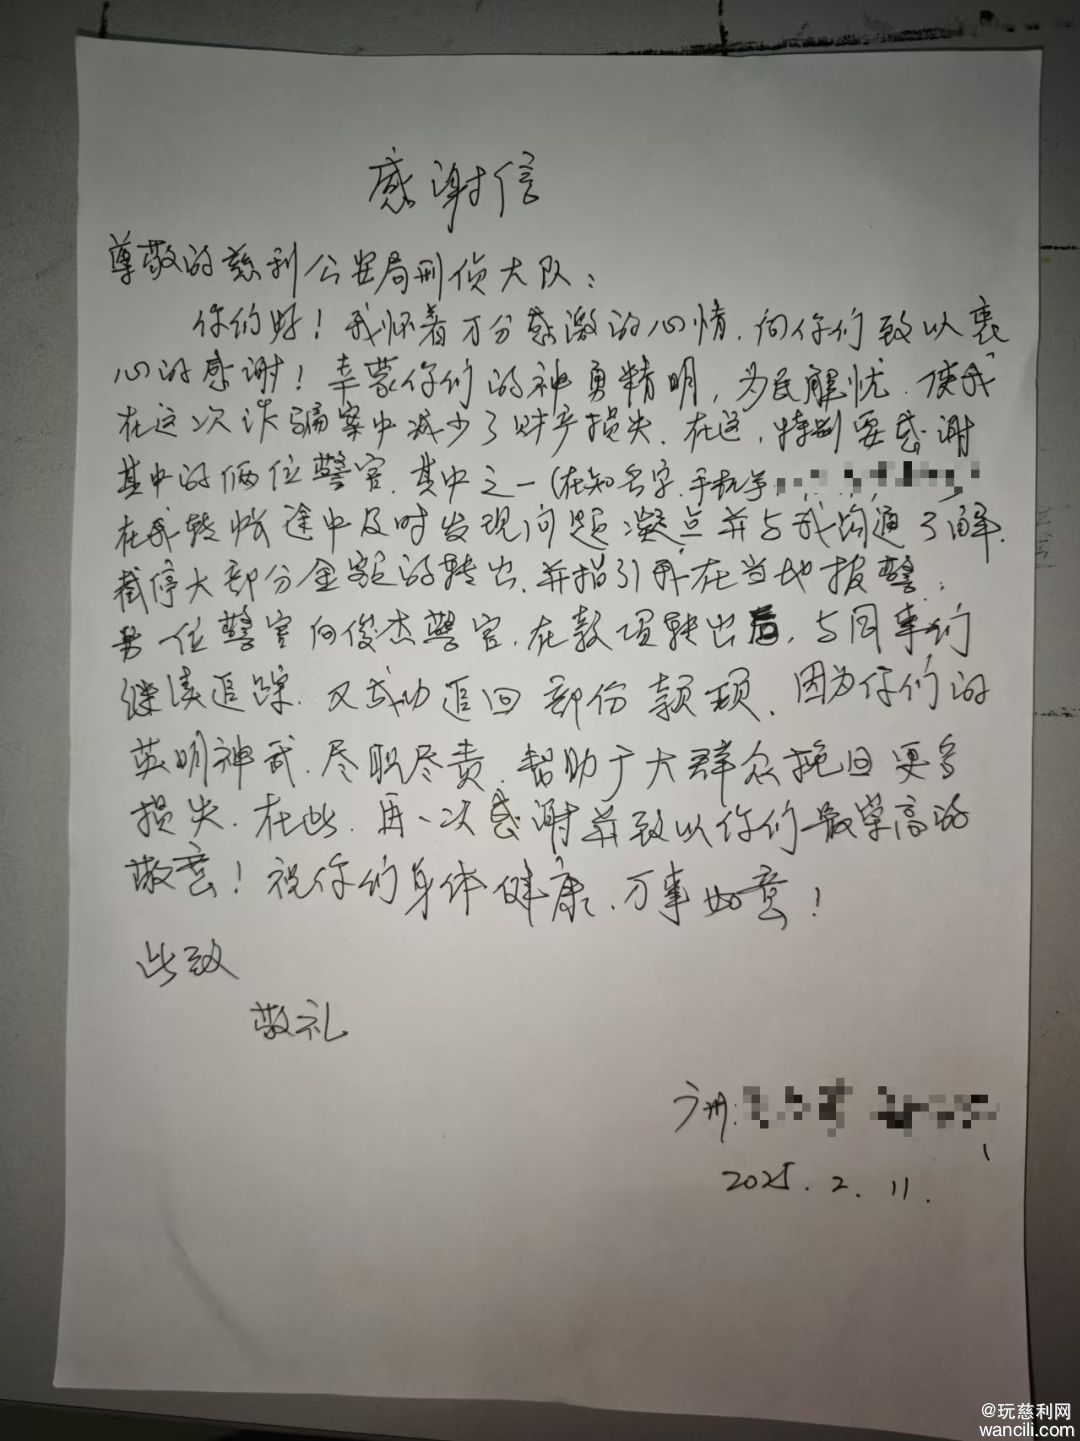 感谢信
尊敬的慈利公安局刑侦大队：
你们好！我怀着万分感激的心情，向你们致以衷
心的感谢！幸蒙你们的神勇精明，为民解忧，使我
在这次诈骗案中减少了财产损失，在这，特别要感谢
其中的俩位警官，其中之一（在知名字，手机字
在我转帐途中及时发现问题凝点并与我沟通了解，
截停大部分金额的转出，并指引我在当地报警；
另一位警官向俊杰警官，在款项转出后，与同事们
继续追踪，又成功追回部份款项，因为你们的
英明神武，尽职尽责，帮助于大群众挽回更多
损失，在此，再一次感谢并致以你们最崇高的
敬意！祝你们身体健康、万事如意！
此致
敬礼
广州：
2025.2.11.
@玩慈利网
wancili.com